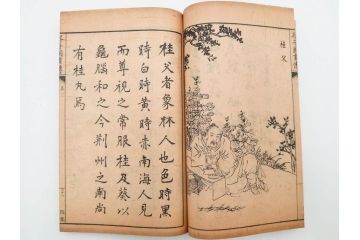 桂父
桂父者象林人也色時黑
時白時黃時赤南海人見
而尊視之常服桂及葵以
龜腦和之今荊州之南尚
有桂丸焉